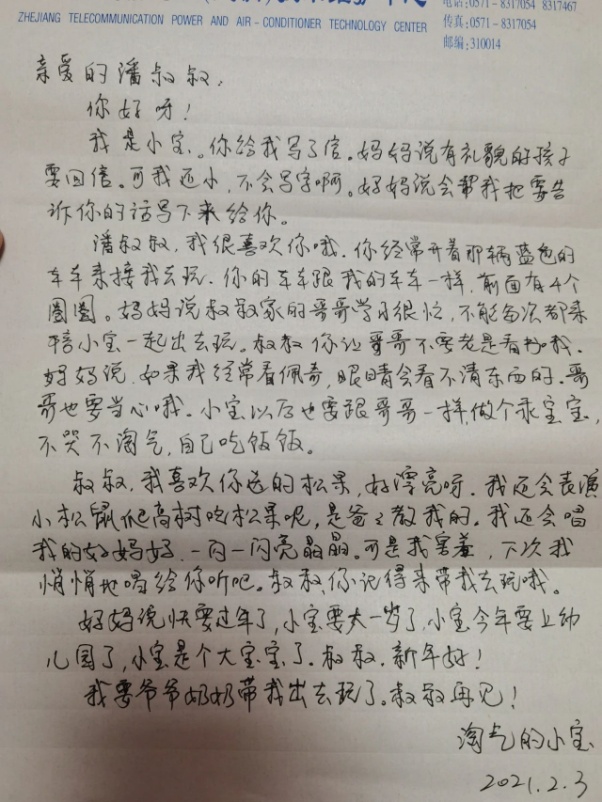 ZHEJIANG TELECOMMUNICATION POWER AND AIR-CONDITIONER TECHNOLOGY CENTER
电话:0571-8317054 8317467
传真:0571-8317054
邮编:310014
亲爱的潘叔叔,
你好呀!
我是小宝。你给我写了信。妈妈说有礼貌的孩子
要回信。可我还小,不会写字啊。妈妈说会帮我把要告
诉你的话写下来给你。
潘叔叔,我很喜欢你哦。你经常开着那辆蓝色的
车车来接我去玩。你的车车跟我的车车一样,前面有4个
圈圈。妈妈说叔叔家的哥哥学习很忙,不能每次都来
陪小宝一起出去玩。叔叔你让哥哥不要老是看书哦。
妈妈说,如果我经常看佩奇,眼睛会看不清东西的。哥
哥也要当心哦。小宝以后也要跟哥哥一样,做个乖宝宝,
不哭不淘气,自己吃饭饭。
叔叔,我喜欢你送的松果,好漂亮呀。我还会表演
小松鼠爬高树吃松果呢,是爸爸教我的。我还会唱
我的好妈妈,一闪一闪亮晶晶。可是我害羞,下次我
悄悄地唱给你听吧。叔叔,你记得来带我去玩哦。
妈妈说快要过年了,小宝要大一岁了,小宝今年要上幼
儿园了,小宝是个大宝宝了。叔叔,新年好!
我要爷爷奶奶带我出去玩了。叔叔再见!
淘气的小宝
2021.2.3